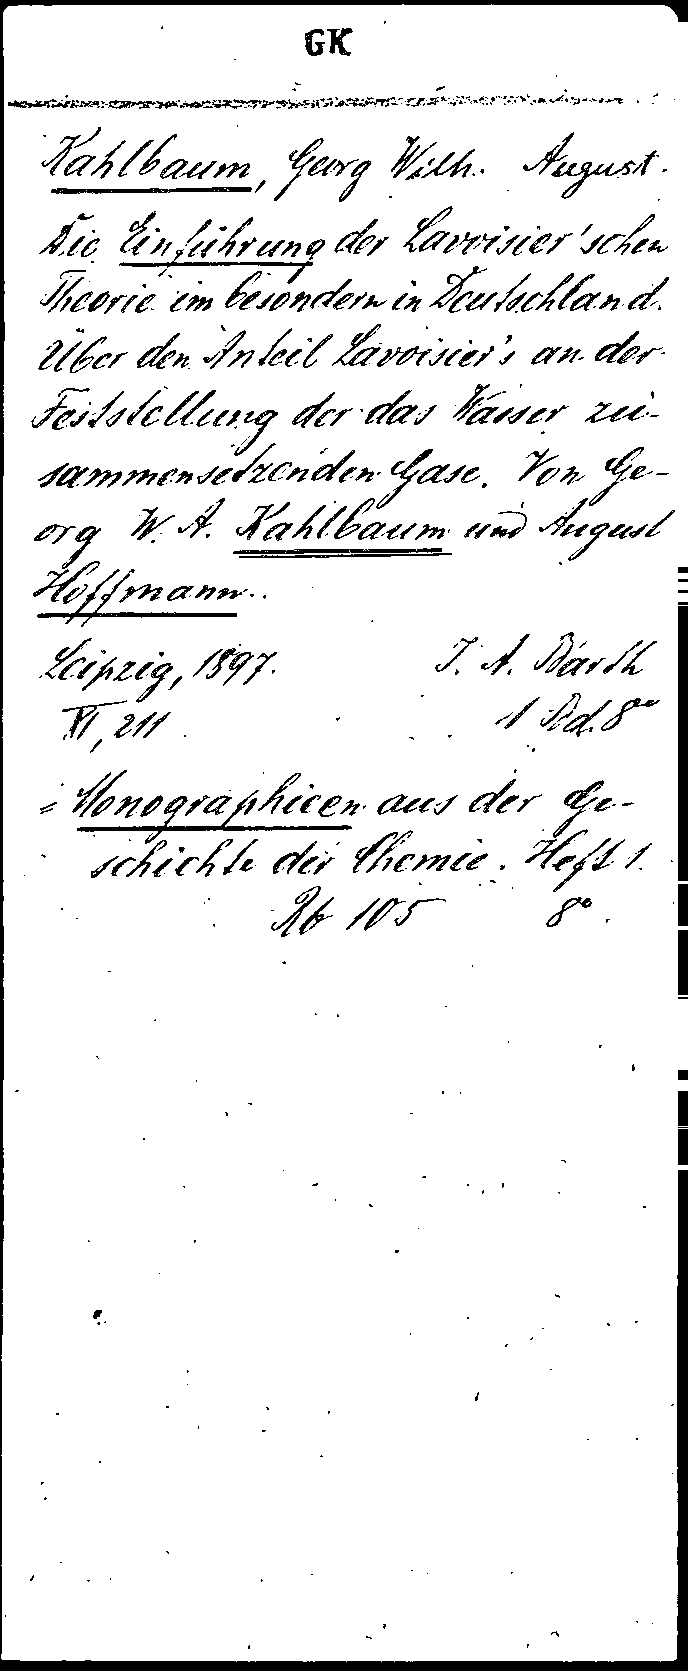 GK
Kahlbaum, Georg Wilh. August.
Die Einführung der Lavoisier'schen
Theorie im besondern in Deutschland.
Über den Anteil Lavoisier's an der
Feststellung der das Wasser zu-
sammensetzenden Gase. Von Ge-
org W. A. Kahlbaum und August
Hoffmann.
Leipzig, 1897. J. A. Barth
XI, 211 1 Bd. 8°
= Monographieen aus der Ge-
schichte der Chemie. Heft 1.
Rb 105 8°.